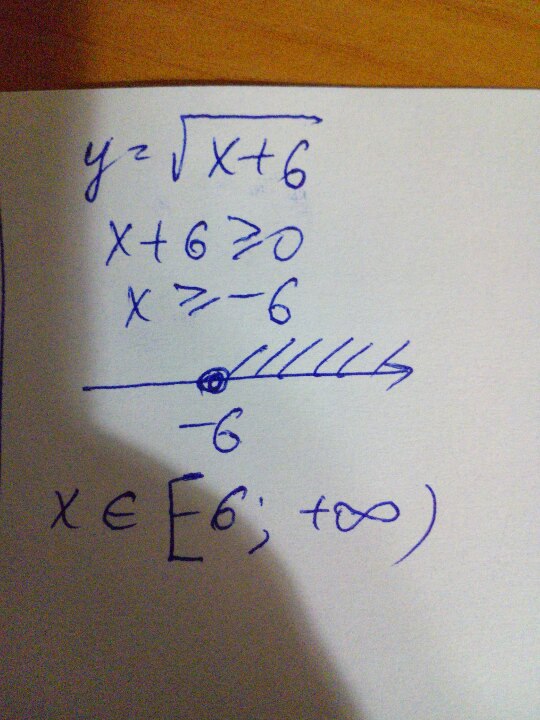 y = √x+6
x+6 ≥ 0
x ≥ -6
-6
x ∈ [-6; +∞)